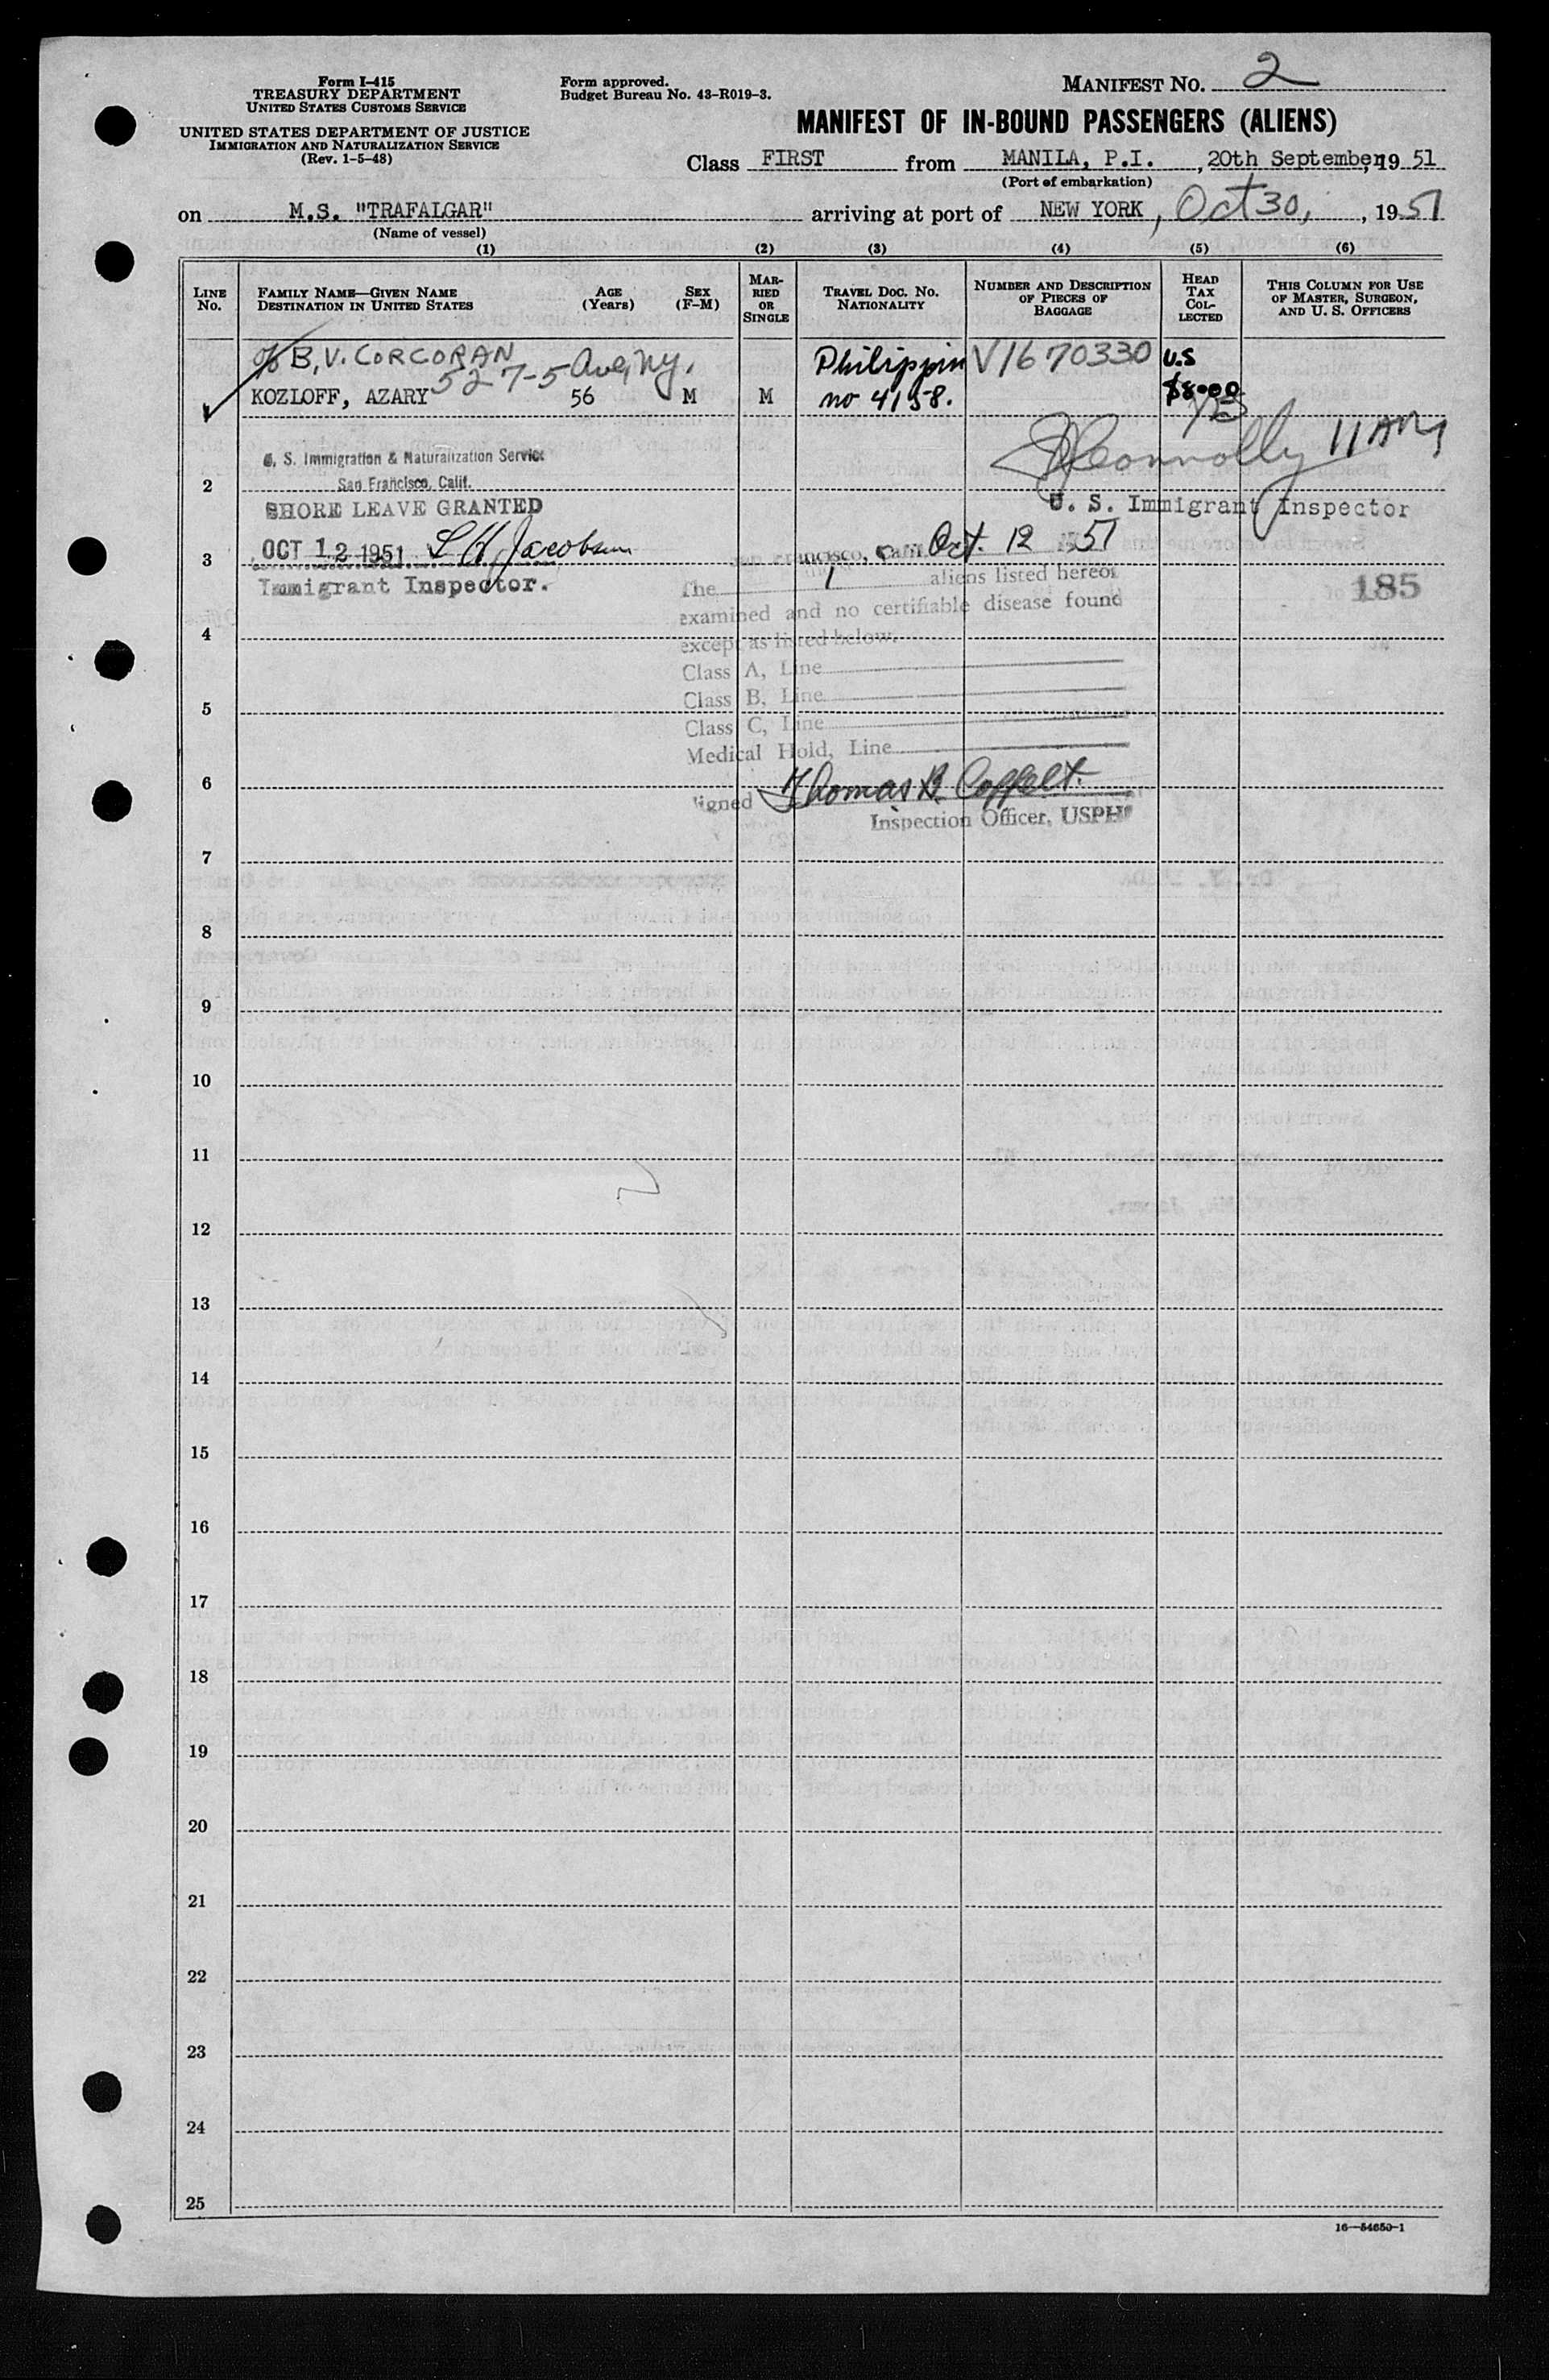 Form I-415
TREASURY DEPARTMENT
UNITED STATES CUSTOMS SERVICE
UNITED STATES DEPARTMENT OF JUSTICE
IMMIGRATION AND NATURALIZATION SERVICE
(Rev. 1-5-48)
Form approved.
Budget Bureau No. 43-R019-3.
MANIFEST NO. 2
MANIFEST OF IN-BOUND PASSENGERS (ALIENS)
Class FIRST from MANILA, P.I., 20th September, 1951
(Port of embarkation)
on M.S. "TRAFALGAR" arriving at port of NEW YORK, Oct 30, , 1951
(Name of vessel)
(1) (2) (3) (4) (5) (6)
LINE No.
FAMILY NAME—GIVEN NAME
DESTINATION IN UNITED STATES
AGE (Years)
SEX (F-M)
MARRIED OR SINGLE
TRAVEL DOC. NO.
NATIONALITY
NUMBER AND DESCRIPTION OF PIECES OF BAGGAGE
HEAD TAX COLLECTED
THIS COLUMN FOR USE OF MASTER, SURGEON, AND U. S. OFFICERS
% B, V. CORCORAN
527-5 Ave, Ny.
KOZLOFF, AZARY 56 M M
Philippin
no 4158.
V1670330
U.S
$8.00
Connolly 11 AM
U. S. Immigrant Inspector
S. Immigration & Naturalization Service
San Francisco, Calif.
SHORE LEAVE GRANTED
OCT 12 1951 L H Jacobsen
Immigrant Inspector.
San Francisco, Calif. Oct. 12 51
The 1 aliens listed hereon
examined and no certifiable disease found
except as listed below.
Class A, Line
Class B, Line
Class C, Line
Medical Hold, Line
Signed Thomas B. Coffelt.
Inspection Officer, USPH
185
2
3
4
5
6
7
8
9
10
11
12
13
14
15
16
17
18
19
20
21
22
23
24
25
16—54650-1